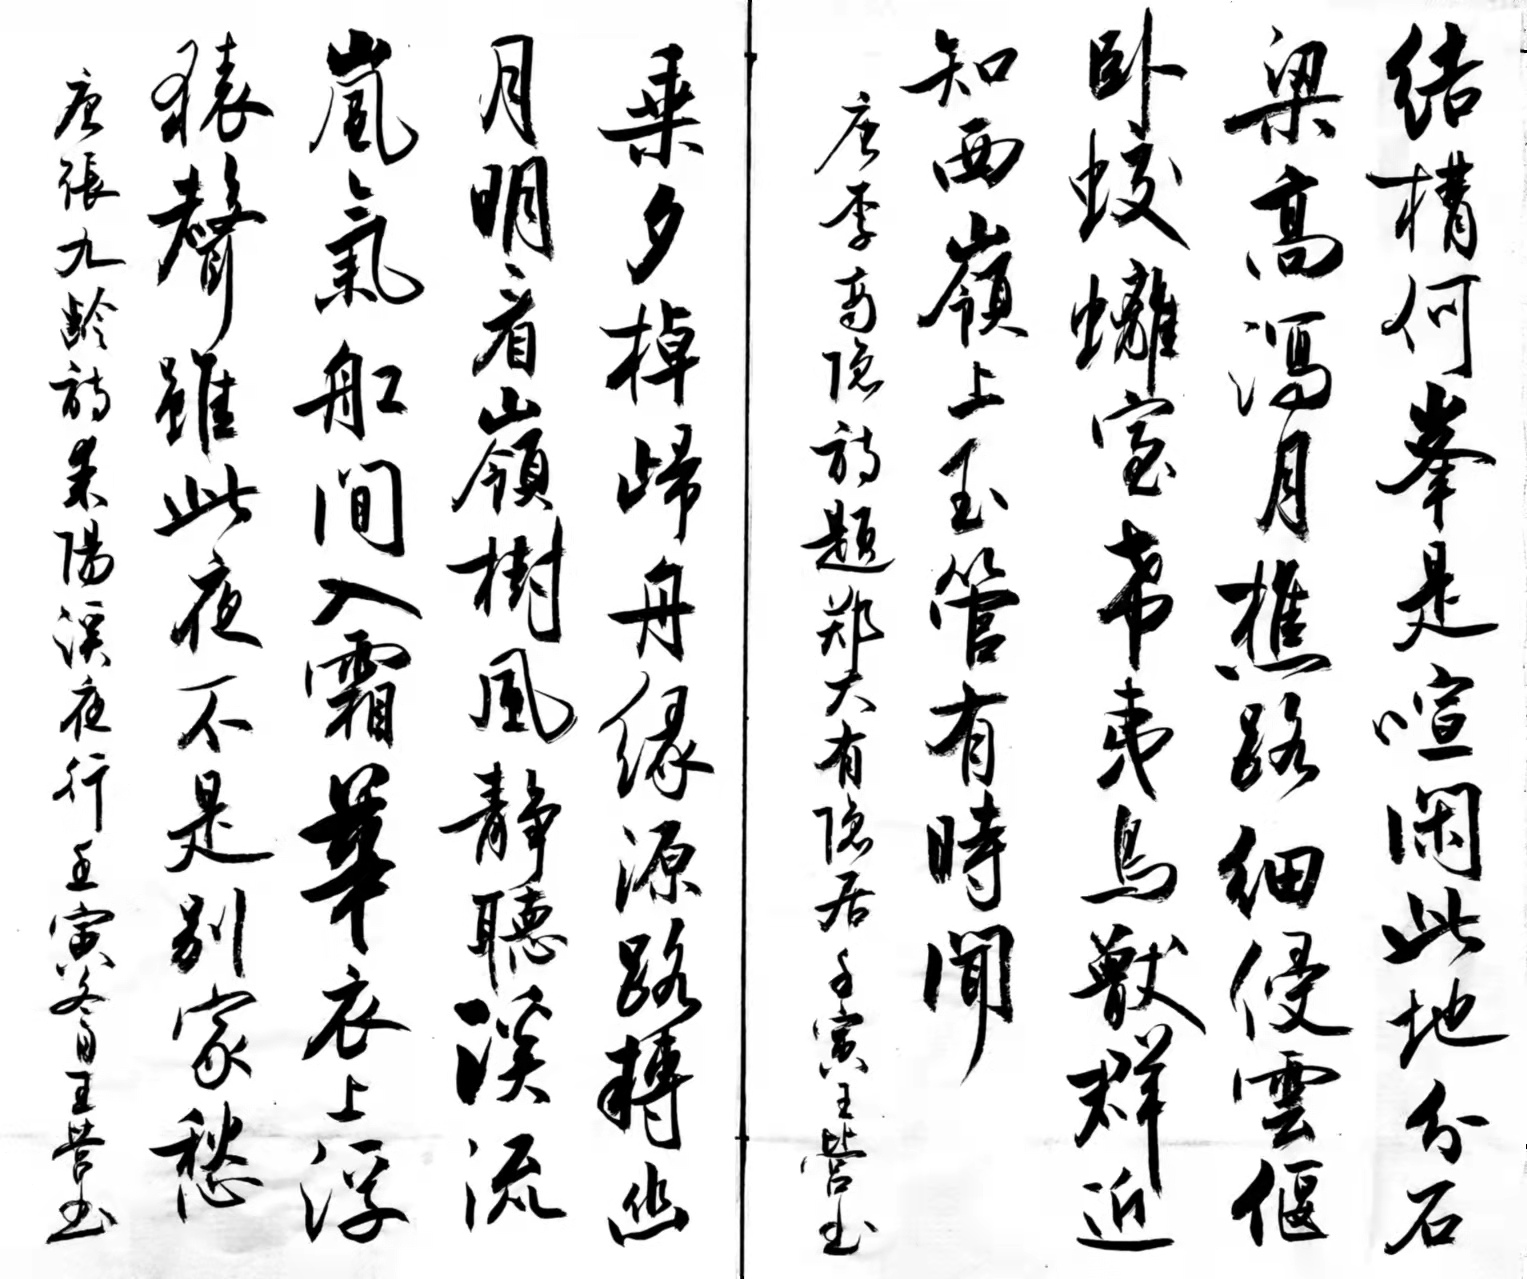 结構何峯是喧閑此地分石
梁高瀉月樵路細侵雲偃
卧蛟螭室希夷鳥獸群近
知西嶺上玉管有時聞
唐李商隐詩題郑大有隐居壬寅王营书
乘夕棹歸舟緣源路轉幽
月明看嶺樹風靜聽溪流
嵐氣船間入霜華衣上浮
猿聲雖此夜不是别家愁
唐張九齡詩耒陽溪夜行壬寅冬月王营书